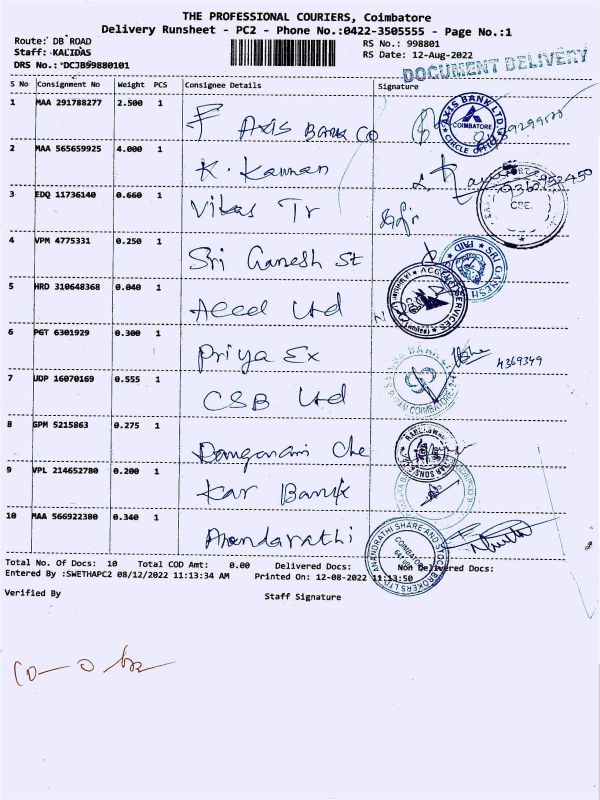 THE PROFESSIONAL COURIERS, Coimbatore
Delivery Runsheet - PC2 - Phone No.:0422-3505555 - Page No.:1
Route: DB ROAD RS No.: 998801
Staff: KALIDAS RS Date: 12-Aug-2022
DRS No.: DCJB99880101 DOCUMENT DELIVERY
S No Consignment No Weight PCS Consignee Details Signature
1 MAA 291788277 2.500 1 F Axis Bank CO
AXIS BANK LTD COIMBATORE CIRCLE OFFICE
2 MAA 565659925 4.000 1 K. Kannan
9360952450
3 EDQ 11736140 0.660 1 Vikas Tr
CBE.
4 VPM 4775331 0.250 1 Sri Ganesh St
SRI GANESH PAID
5 HRD 310648368 0.040 1 Accel Ltd
6 PGT 6301929 0.300 1 Priya Ex
4369349
7 UDP 16070169 0.555 1 CSB Ltd
8 GPM 5215863 0.275 1
9 VPL 214652780 0.200 1 Kar Bank
10 MAA 566922380 0.340 1 Anandarathi
ANANDRATHI SHARE AND STOCK BROKERS LTD COIMBATORE
Total No. Of Docs: 10 Total COD Amt: 0.00 Delivered Docs: Non Delivered Docs:
Entered By :SWETHAPC2 08/12/2022 11:13:34 AM Printed On: 12-08-2022 11:13:50
Verified By Staff Signature